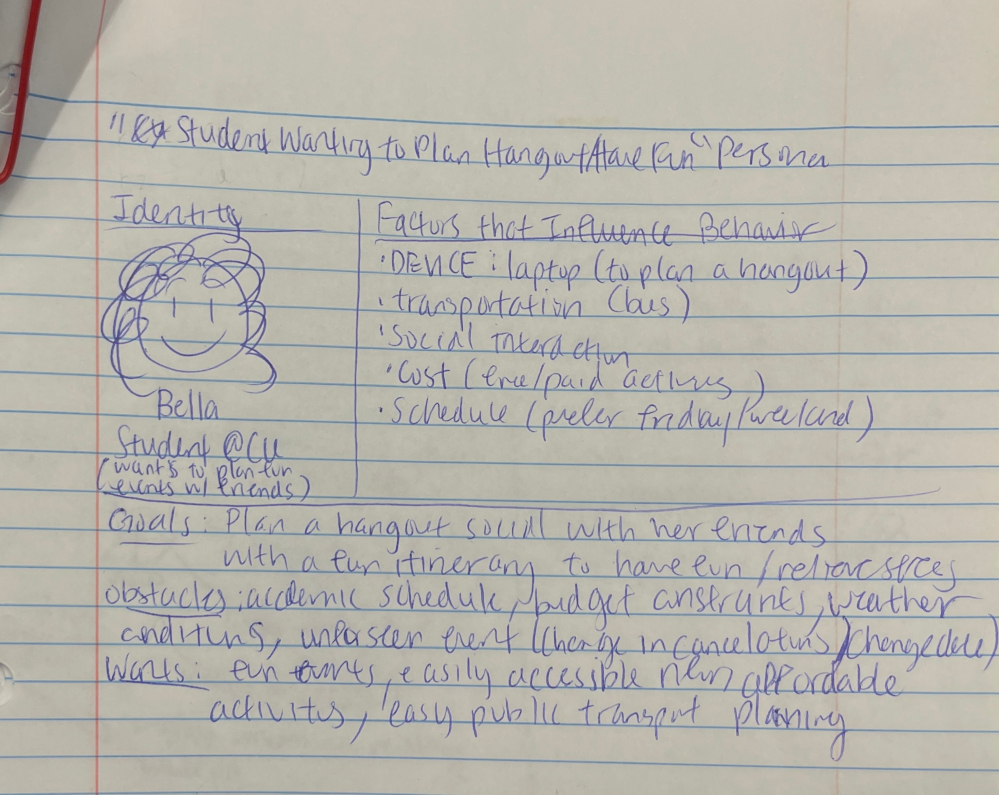 "Student Wanting to Plan Hangout/Have Fun" Persona
Identity
Bella
Student @CU
(wants to plan fun
events w/ friends)
Factors that Influence Behavior
• DEVICE: laptop (to plan a hangout)
• transportation (bus)
• Social interaction
• Cost (free/paid activities)
• Schedule (prefer friday/weekend)
Goals: Plan a hangout social with her friends
with a fun itinerary to have fun / relieve stress
Obstacles: academic schedule, budget constraints, weather
conditions, unforseen event (change in cancelations)/change date)
Wants: fun events, easily accessible affordable
activities, easy public transport planning